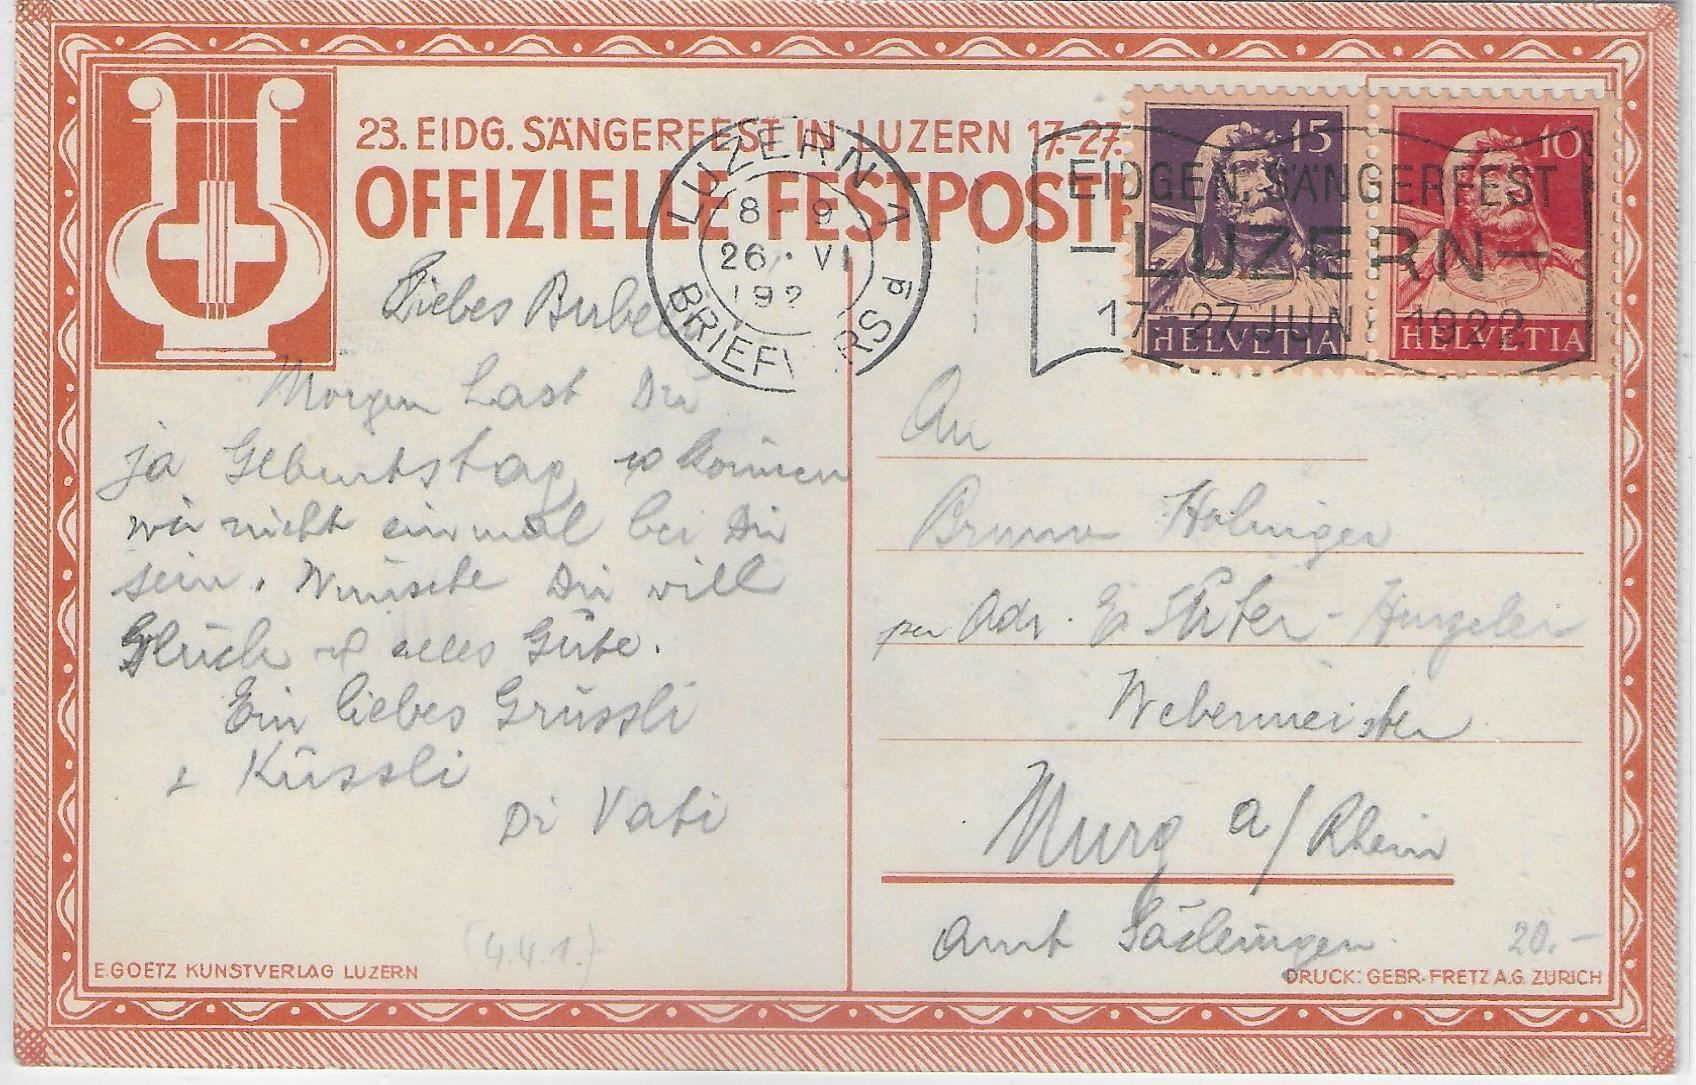 23. EIDG. SÄNGERFEST IN LUZERN 17.-27.
OFFIZIELLE FESTPOST
LUZERN 1
8-9
26. VI
192
BRIEFVERS
EIDGEN. SÄNGERFEST
-LUZERN-
17-27. JUNI 1922
15
HELVETIA
10
HELVETIA
Liebes
Morgen hast Du
ja Geburtstag, so können
wir nicht einmal bei Dir
sein. Wünsche Dir viell
Glück & alles Gute.
Ein liebes Grüssli
& Küssli
Di Vati
(4.4.1.)
An
Bruno
per Adr.
Webermeister
Murg a/Rhein
Amt Säckingen
20.-
E. GOETZ KUNSTVERLAG LUZERN
DRUCK: GEBR. FRETZ A.G. ZÜRICH